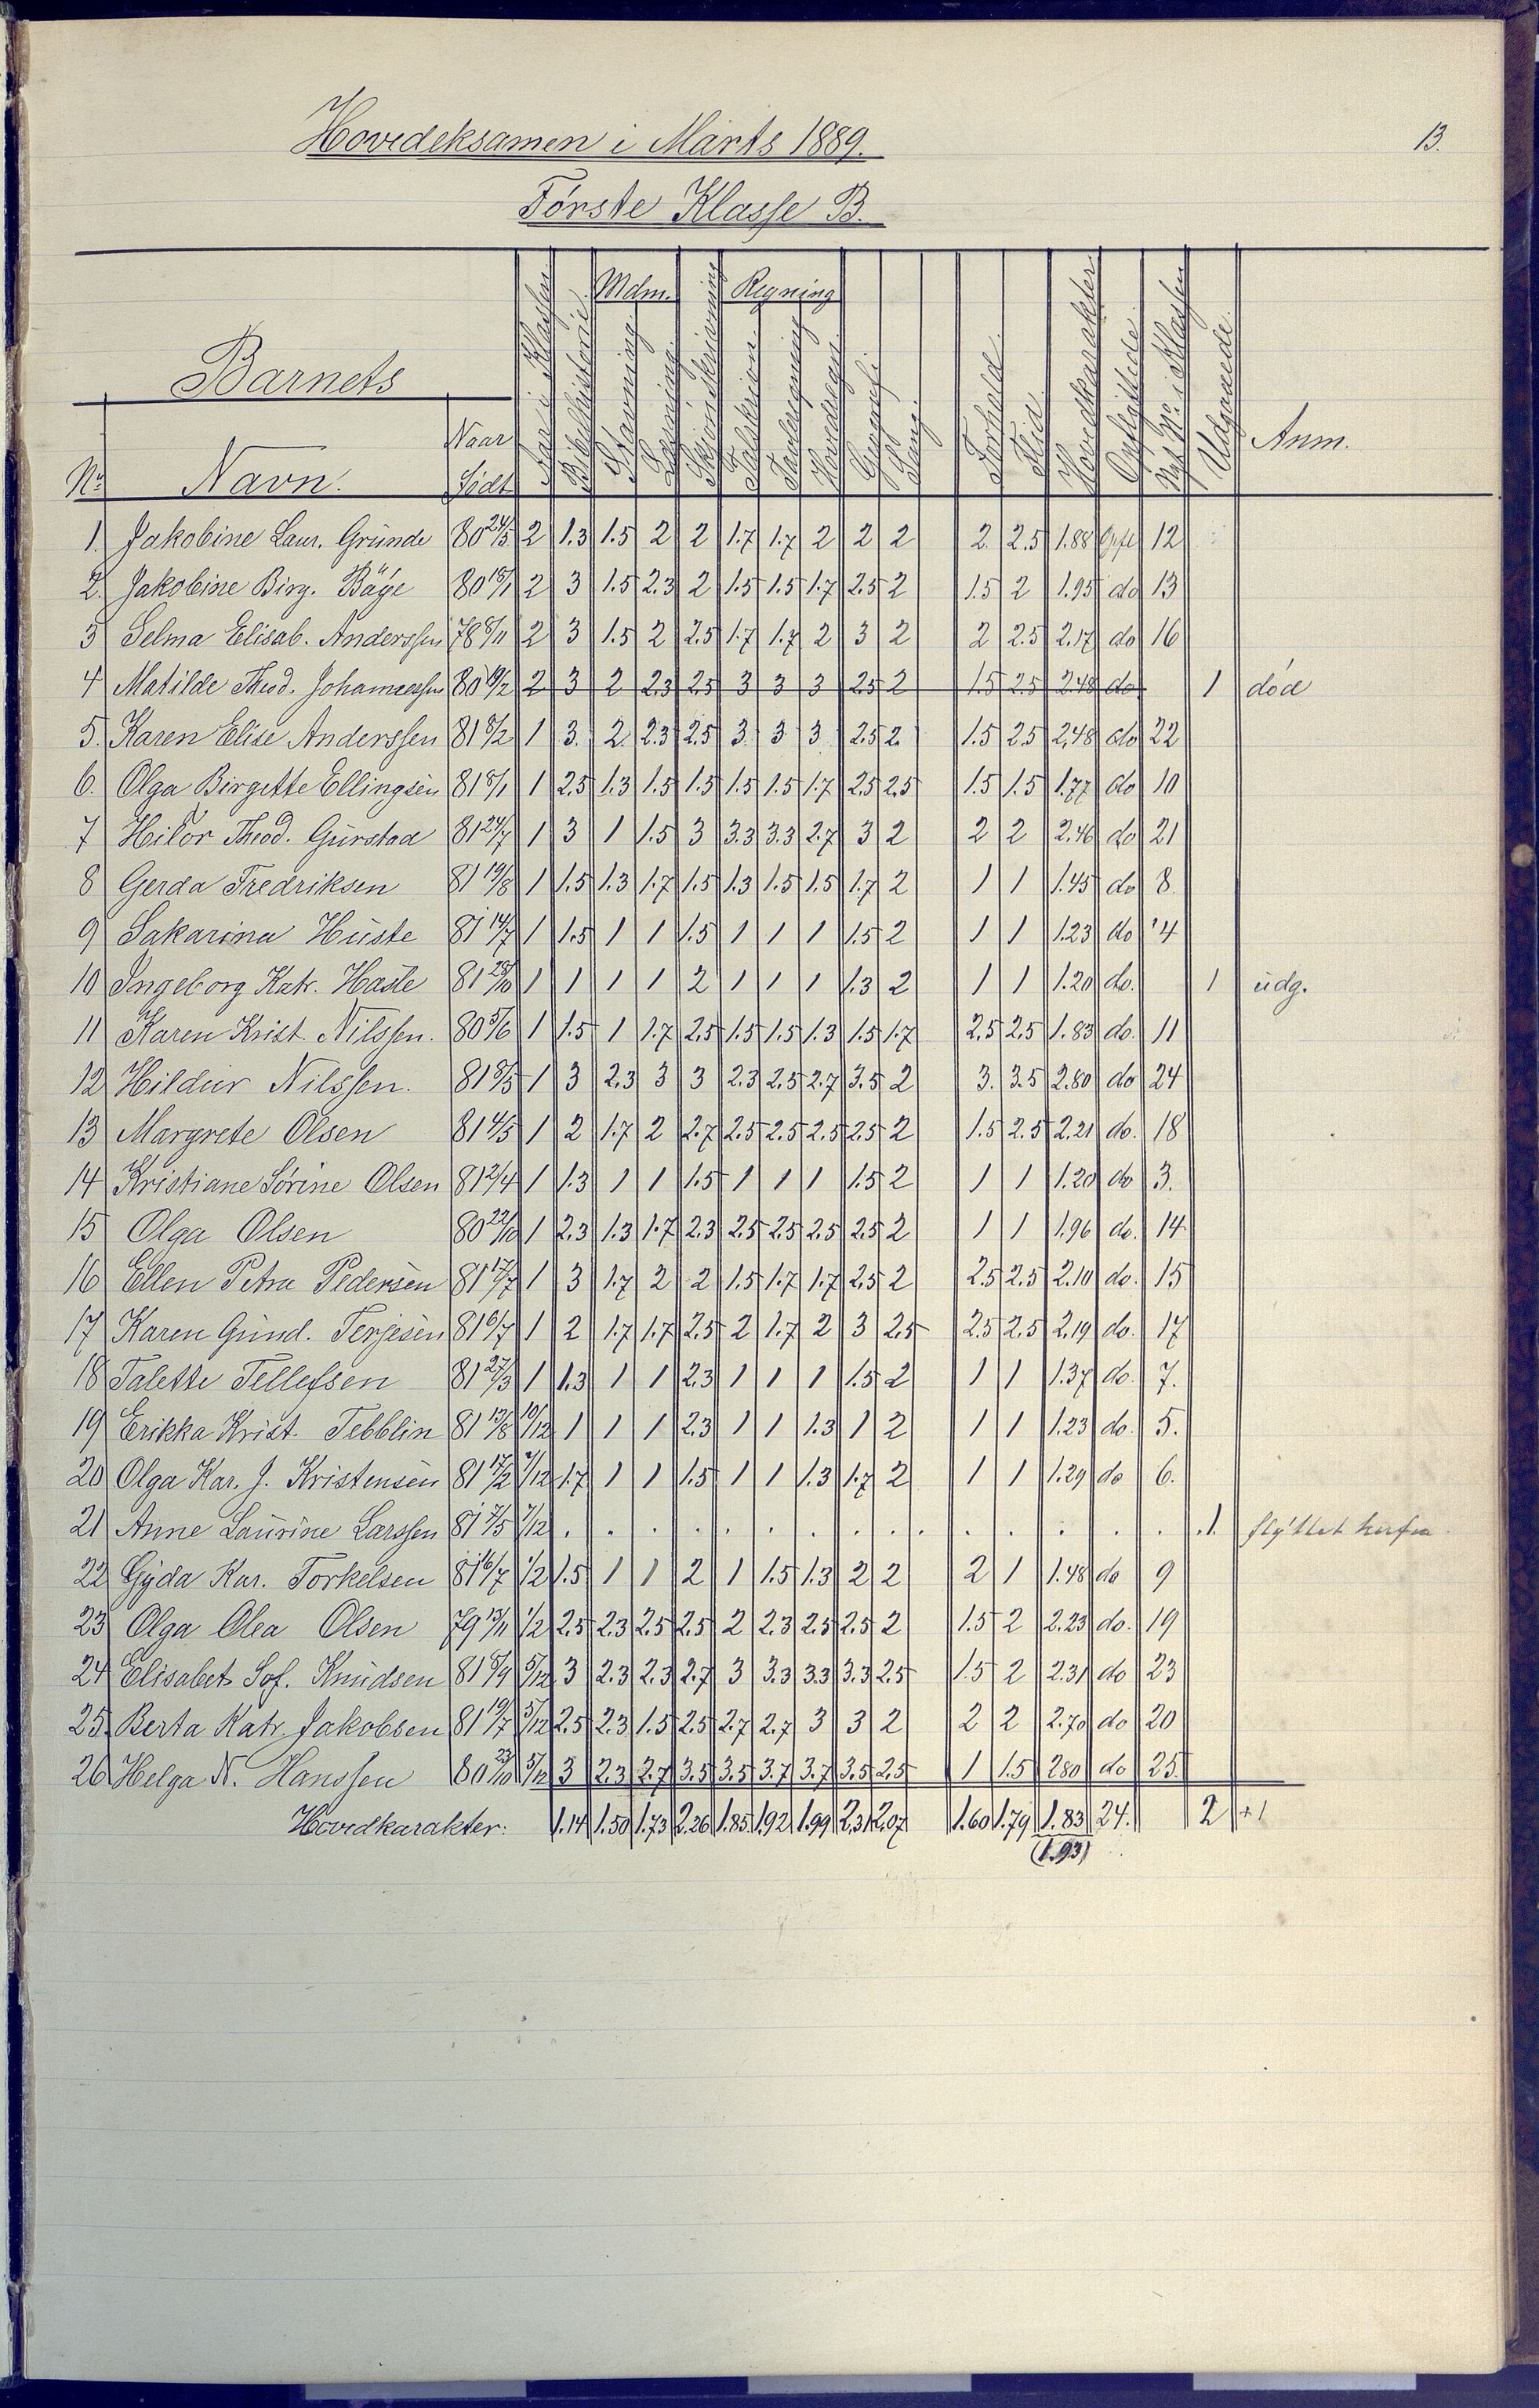 13.
Hovedeksamen i Marts 1889.
Første Klasse B.
Barnets
Mdm. Regning
No Navn. Naar Født Aar i Klassen Bibelhistorie. Stavning. Læsning. Skjønskrivning Talskrivn. Tavleregning Hovedregn. Sang. Forhold. Flid. Hovedkarakter. Opflyttede. Nyt No i Klassen Udgaaede. Anm.
1. Jakobine Laur. Grunde 80 24/5 2 1.3 1.5 2 2 1.7 1.7 2 2 2 2. 2.5 1.88 Opfl 12
2. Jakobine Birg. Bäÿe 80 18/1 2 3 1.5 2.3 2 1.5 1.5 1.7 2.5 2 1.5 2 1.95 do 13
3 Selma Elisab. Anderssen 78 8/11 2 3 1.5 2 2.5 1.7 1.7 2 3 2 2 2.5 2.17 do 16
4 Matilde Theod. Johannessen 80 19/2 2 3 2 2.3 2.5 3 3 3 2.5 2 1.5 2.5 2.48 do 1 død
5. Karen Elise Anderssen 81 8/2 1 3. 2. 2.3 2.5 3. 3 3 2.5 2. 1.5 2.5 2.48 do 22
6. Olga Birgitte Ellingsen 81 8/1 1 2.5 1.3 1.5 1.5 1.5 1.5 1.7 2.5 2.5 1.5 1.5 1.77 do 10
7 Hilør Theod. Gurstad 81 24/7 1 3 1 1.5 3 3.3 3.3 2.7 3 2 2 2 2.46 do 21
8 Gerda Fredriksen 81 19/8 1 1.5 1.3 1.7 1.5 1.3 1.5 1.5 1.7 2 1 1 1.45 do 8.
9 Sakarina Huste 81 14/7 1 1.5 1 1 1.5 1 1 1 1.5 2 1 1 1.23 do 4
10 Ingeborg Katr. Hasle 81 28/10 1 1 1 1 2 1 1 1 1.3 2 1 1 1.20 do. 1 udg.
11 Karen Krist. Nilssen. 80 5/6 1 1.5 1 1.7 2.5 1.5 1.5 1.3 1.5 1.7 2.5 2.5 1.83 do. 11
12 Hildur Nilssen. 81 8/5 1 3 2.3 3 3 2.3 2.5 2.7 3.5 2 3. 3.5 2.80 do 24
13 Margrete Olsen 81 4/5 1 2 1.7 2 2.7 2.5 2.5 2.5 2.5 2 1.5 2.5 2.21 do. 18
14 Kristiane Sørine Olsen 81 2/4 1 1.3 1 1 1.5 1 1 1 1.5 2 1 1 1.20 do 3.
15 Olga Olsen 80 22/10 1 2.3 1.3 1.7 2.3 2.5 2.5 2.5 2.5 2 1 1 1.96 do. 14
16 Ellen Petra Pedersen 81 17/7 1 3 1.7 2 2 1.5 1.7 1.7 2.5 2 2.5 2.5 2.10 do. 15
17 Karen Gund. Terjesen 81 6/7 1 2 1.7 1.7 2.5 2 1.7 2 3 2.5 2.5 2.5 2.19 do. 17
18 Talette Tellefsen 81 27/3 1 1.3 1 1 2.3 1 1 1 1.5 2 1 1 1.37 do. 7.
19 Erikka Krist. Tebblin 81 13/8 10/12 1 1 1 2.3 1 1 1.3 1 2 1 1 1.23 do. 5.
20 Olga Kar. J. Kristensen 81 17/2 7/12 1.7 1 1 1.5 1 1 1.3 1.7 2 1 1 1.29 do 6.
21 Anne Laurine Larssen 81 7/5 7/12 . . . . . . . . . . . . . . . 1. flyttet herfra.
22 Gyda Kar. Torkelsen 81 16/7 1/2 1.5 1 1 2 1 1.5 1.3 2 2 2 1 1.48 do 9
23 Olga Olea Olsen 79 13/11 1/2 2.5 2.3 2.5 2.5 2 2.3 2.5 2.5 2 1.5 2 2.23 do. 19
24 Elisabet Sof. Knudsen 81 8/9 5/12 3 2.3 2.3 2.7 3 3.3 3.3 3.3 2.5 1.5 2 2.31 do 23
25. Berta Katr. Jakobsen 81 19/7 5/12 2.5 2.3 1.5 2.5 2.7 2.7 3 3 2 2 2 2.70 do 20
26 Helga N. Hanssen 80 23/10 5/12 3 2.3 2.7 3.5 3.5 3.7 3.7 3.5 2.5 1 1.5 280 do 25.
Hovedkarakter: 1.14 1.50 1.73 2.26 1.85 1.92 1.99 2.31 2.07 1.60 1.79 1.83 24. 2 +1
(1.93)